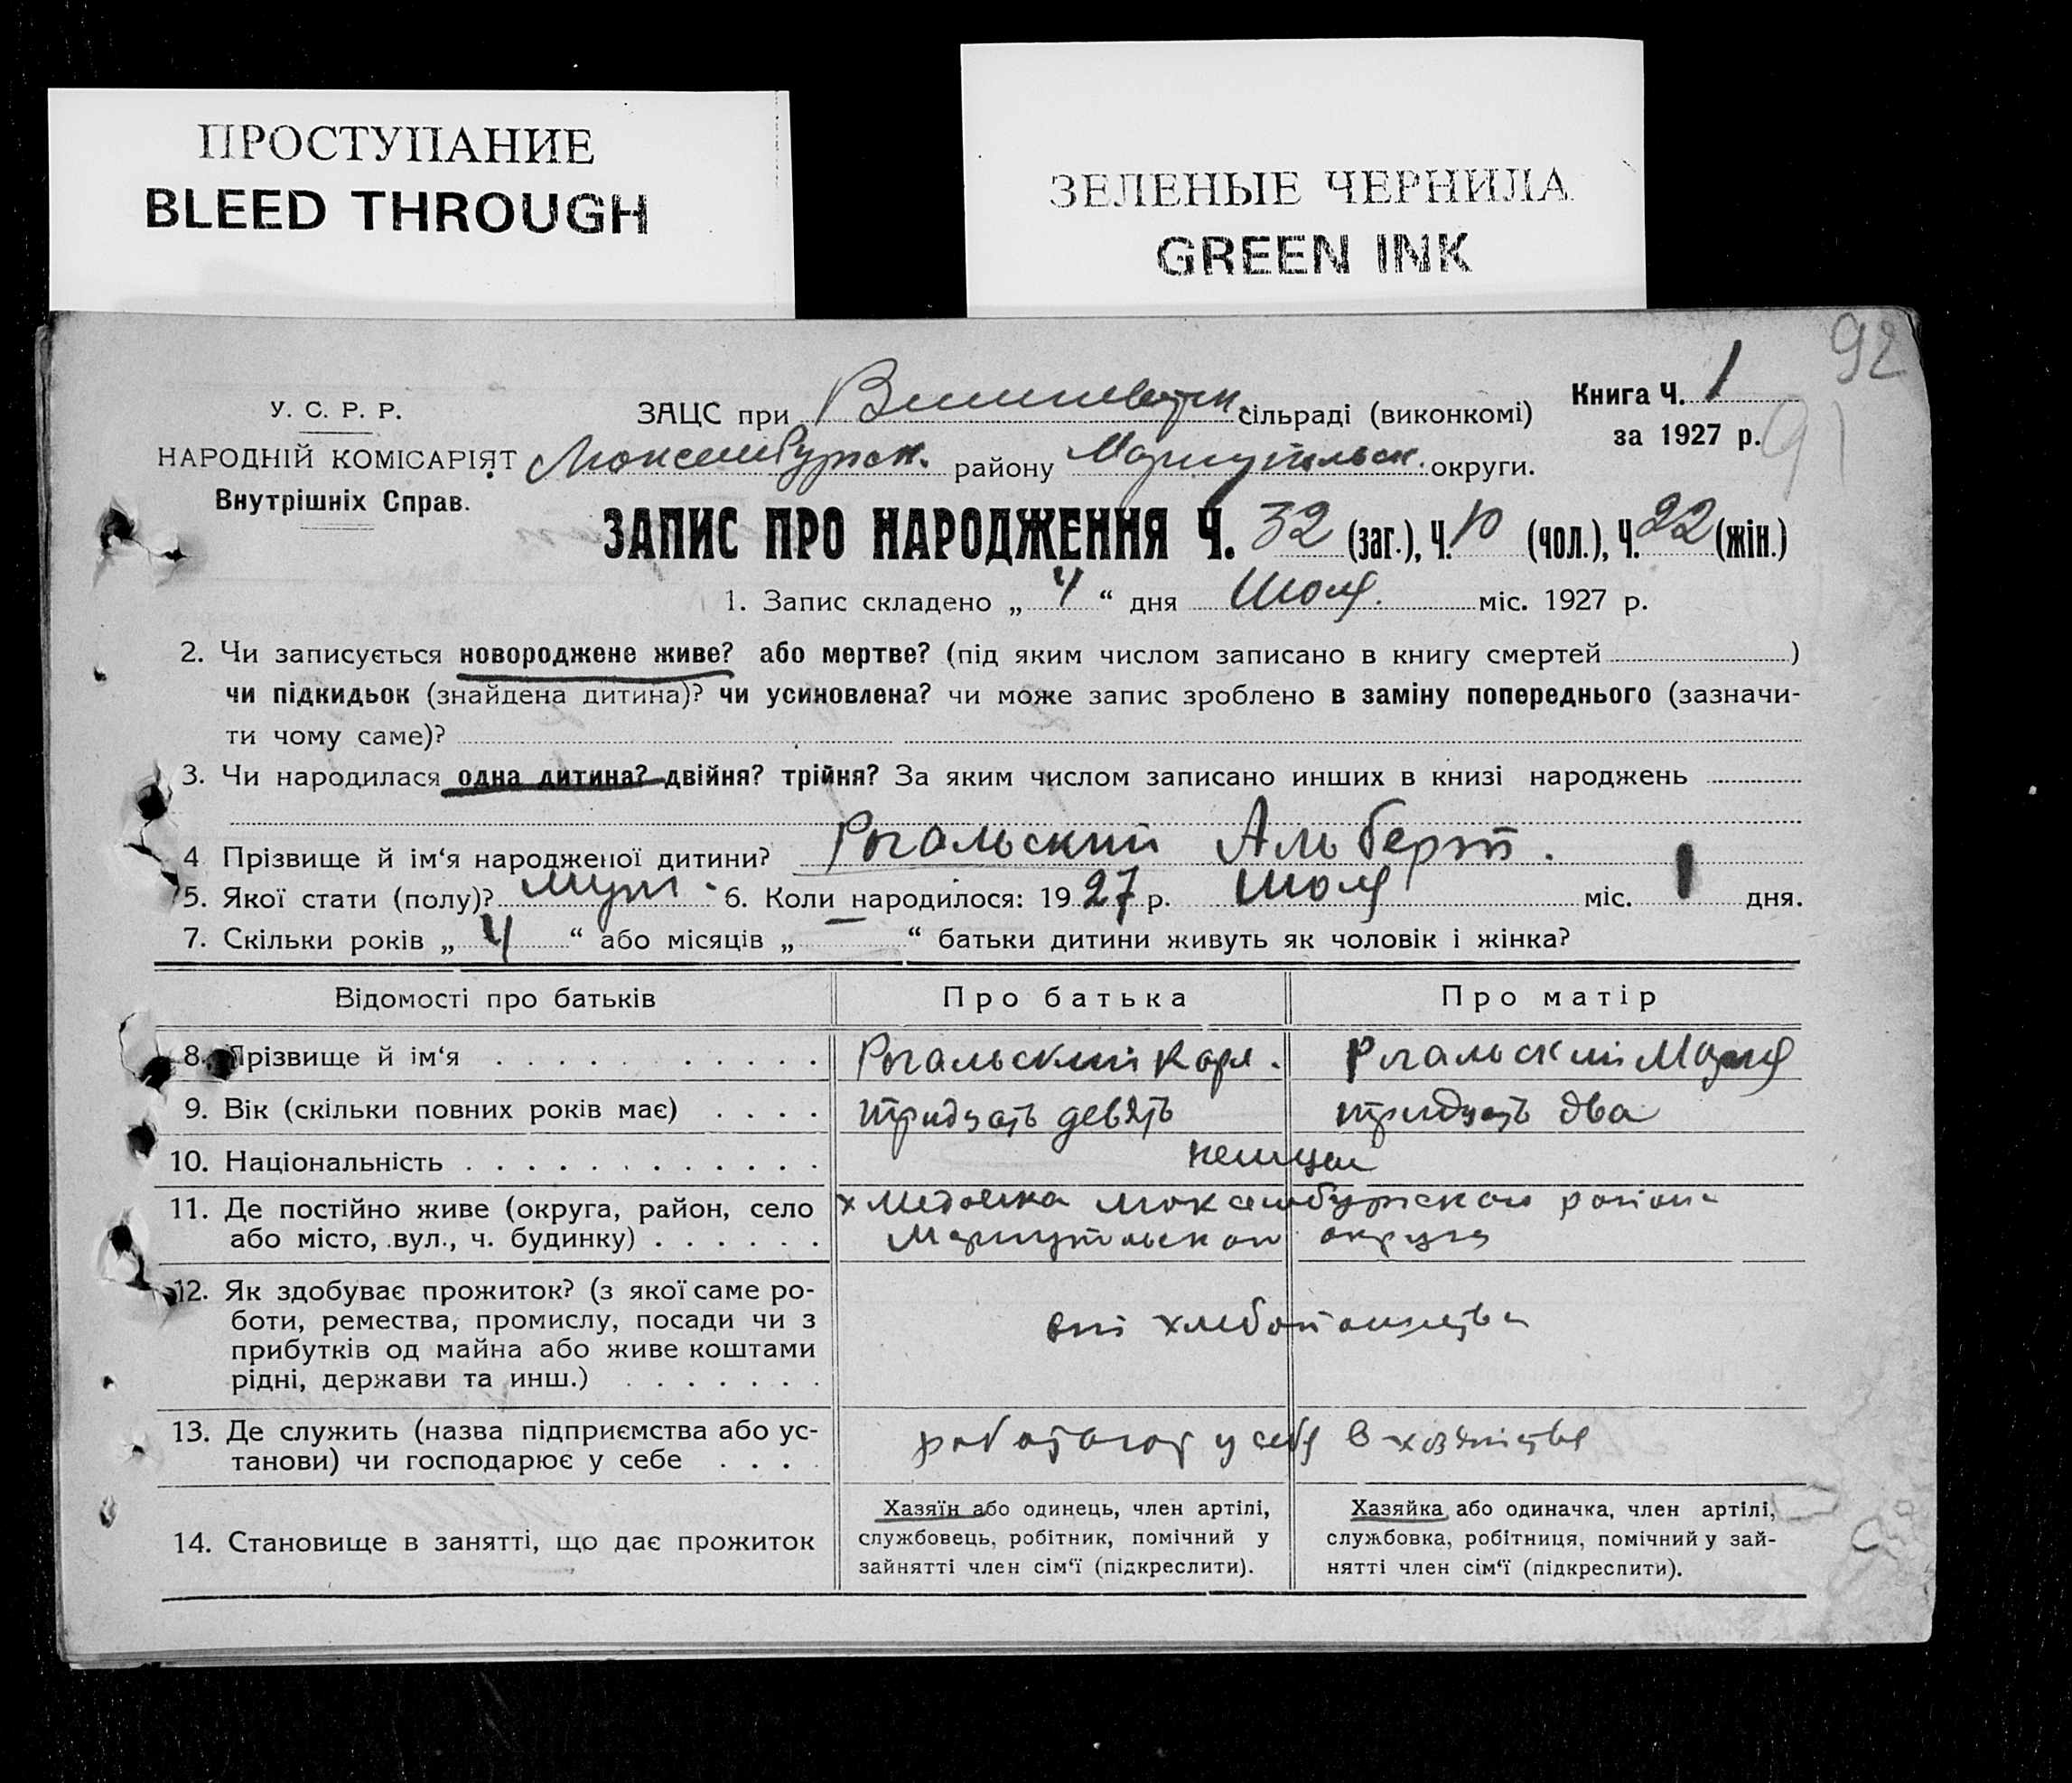 ПРОСТУПАНИЕ
BLEED THROUGH
ЗЕЛЕНЫЕ ЧЕРНИЛА
GREEN INK
92
91
У. С. Р. Р.
НАРОДНІЙ КОМІСАРІЯТ
Внутрішніх Справ.
Книга Ч. 1
за 1927 р.
ЗАЦС при сільраді (виконкомі)
Люксембургск. району Мариупольск. округи.
ЗАПИС ПРО НАРОДЖЕННЯ Ч. 32 (заг.), Ч. 10 (чол.), Ч. 22 (жін.)
1. Запис складено „ 4 “ дня Июля. міс. 1927 р.
2. Чи записується новороджене живе? або мертве? (під яким числом записано в книгу смертей )
чи підкидьок (знайдена дитина)? чи усиновлена? чи може запис зроблено в заміну попереднього (зазначи-
ти чому саме)?
3. Чи народилася одна дитина? двійня? трійня? За яким числом записано инших в книзі народжень
4 Прізвище й ім‘я народженої дитини? Рыгальский Альберт.
5. Якої стати (полу)? муж. 6. Коли народилося: 19 27 р. Июля міс. 1 дня.
7. Скільки років „ 4 “ або місяців „ — “ батьки дитини живуть як чоловік і жінка?
Відомості про батьків Про батька Про матір
8. Прізвище й ім‘я Рыгальский Карл. Рыгальский Мария
9. Вік (скільки повних років має) тридцать девять тридцать два
10. Національність немцы
11. Де постійно живе (округа, район, село х Медовка Люксембургского района
або місто, вул., ч. будинку) Мариупольской округа
12. Як здобуває прожиток? (з якої саме ро-
боти, ремества, промислу, посади чи з
прибутків од майна або живе коштами
рідні, держави та инш.) хлебопашества
13. Де служить (назва підприємства або ус-
танови) чи господарює у себе работают у себя в хозяйстве
14. Становище в занятті, що дає прожиток
Хазяїн або одинець, член артілі,
службовець, робітник, помічний у
зайнятті член сім‘ї (підкреслити).
Хазяйка або одиначка, член артілі,
службовка, робітниця, помічний у зай-
нятті член сім‘ї (підкреслити).